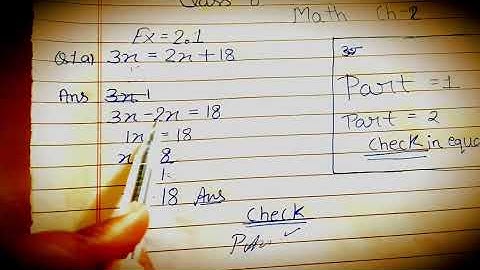 Class 8
Math Ch-2
Ex = 2.1
Q.1 a) 3x = 2x + 18
Ans
3x - 2x = 18
1x = 18
x 8
1
18 Ans
Check
Part = 1
Part = 2
Check in equa